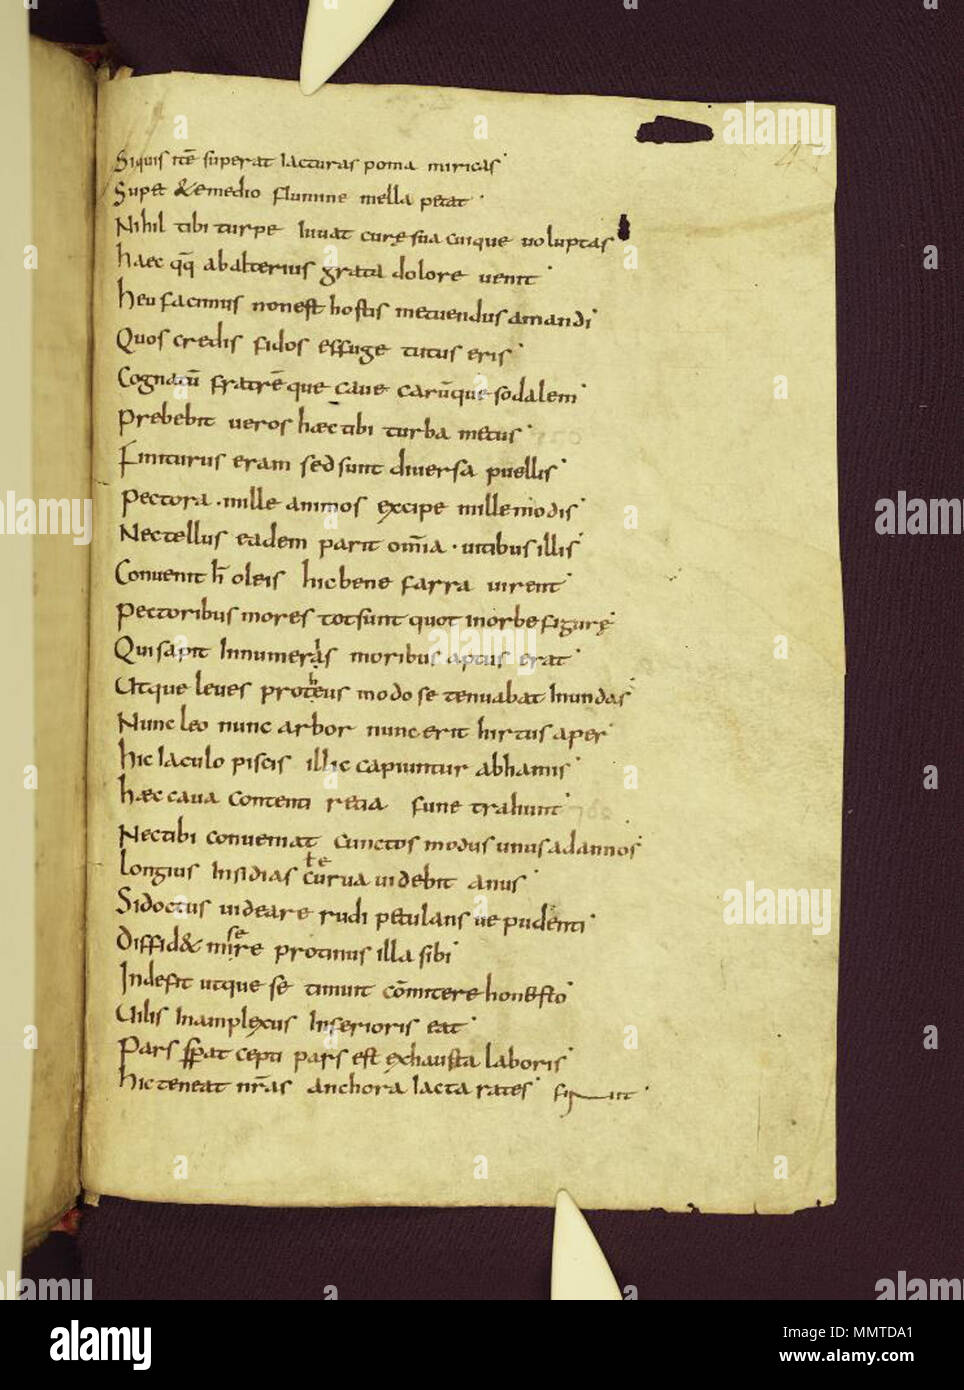 Siquis ītē superat lacturas poma miricas
Supet &emedio flumine mella petat
Nihil tibi turpe luuat curę sua cuique uoluptas
haec qq̄ abalterius grata dolore uenit
heu facinus nonest hostis metuendus amandi
Quos credis fidos effuge tutus eris
Cognatū fratrēque caue carūque sodalem
Prebebit ueros hæc tibi turba metus
Finiturus eram sed sunt diuersa puellis
Pectora · mille animos excipe mille modis
Nectellus eadem parit om̄ia · uitibus illis
Conuenit h̄ oleis hic bene farra uirent
Pectoribus mores totsunt quot inorbe figurę
Quisapit Innumeris moribus aptus erat
Utque leues protheus modo se tenuabat Inundas
Nunc leo nunc arbor nunc erit hirtus aper
hic Iaculo piscis illic capiuntur abhamis
hæc caua contenti retia fune trahunt
Nectibi conueniat cunctos modus unus adannos
Longius Insidias curua uidebit anus
te
Sidoctus uideare rudi petulans ue pudenti
Diffid& misere protinus illa sibi
Indefit utque se timuit cōmittere honesto
Uilis Inamplexus Inferioris eat
Pars sp̄at cepti pars est exhausta laboris
hic teneat nr̄as anchora Iacta rates
alamy
Image ID: MMTDA1
www.alamy.com